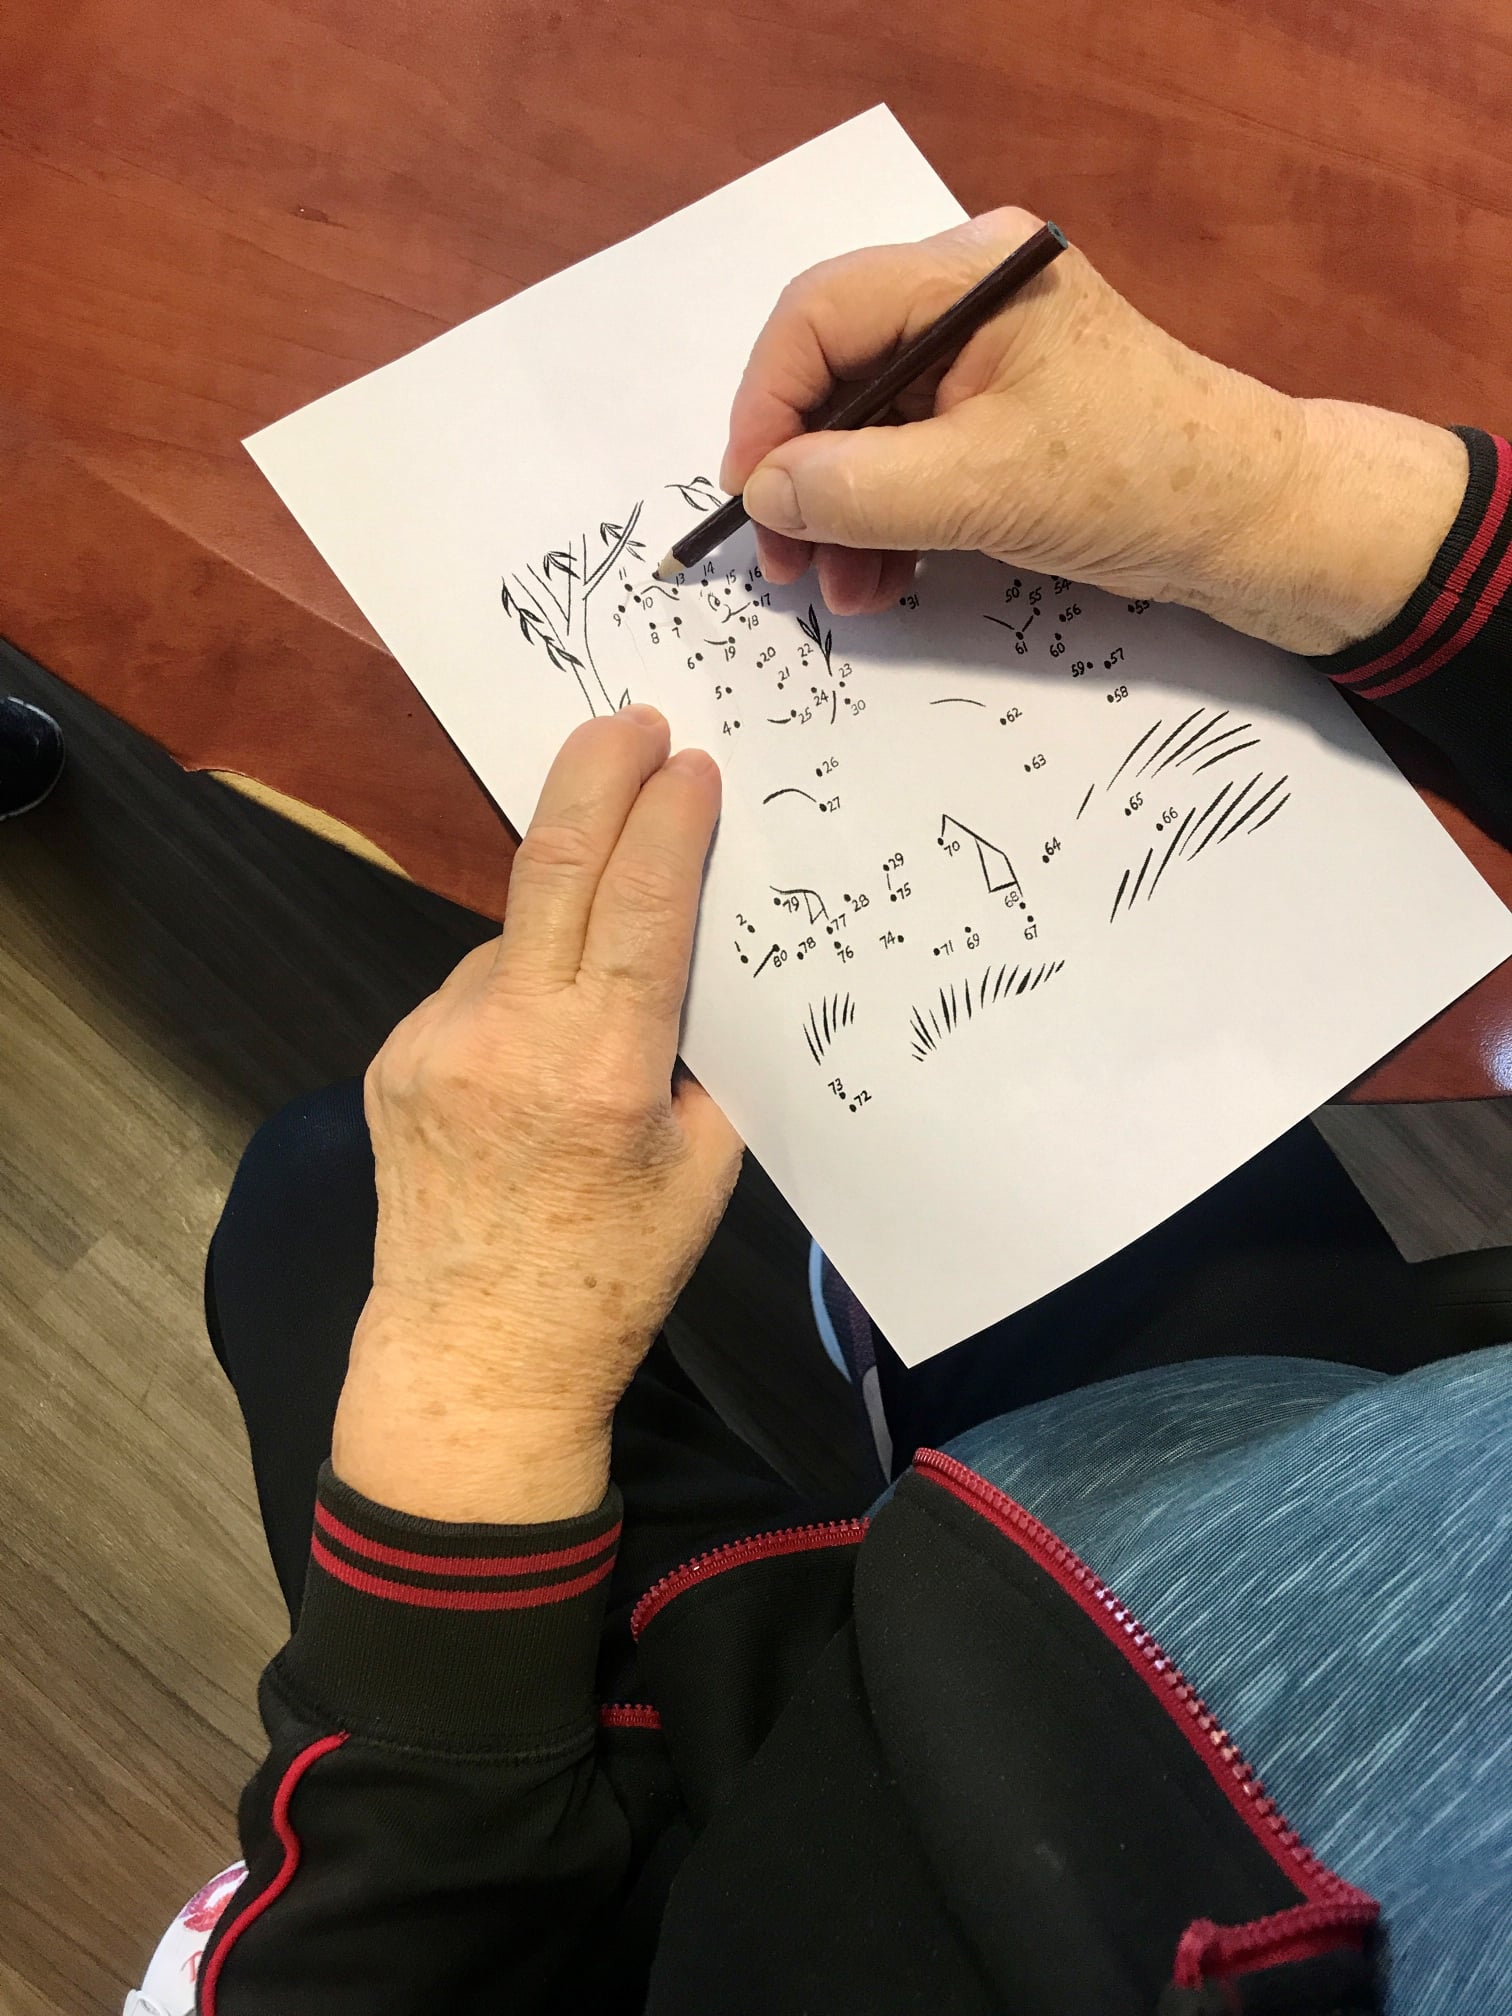 14
11 13 15 16
10 17
9 50 55 54
31 53
8 7 18 56
61 60
6 19 20 22 59 57
5 21 23 58
24
4 25 30 62
26 63
27 65 66
70 64
29
79 28 75 68
2 77 67
1 80 78 76 74 71 69
73 72